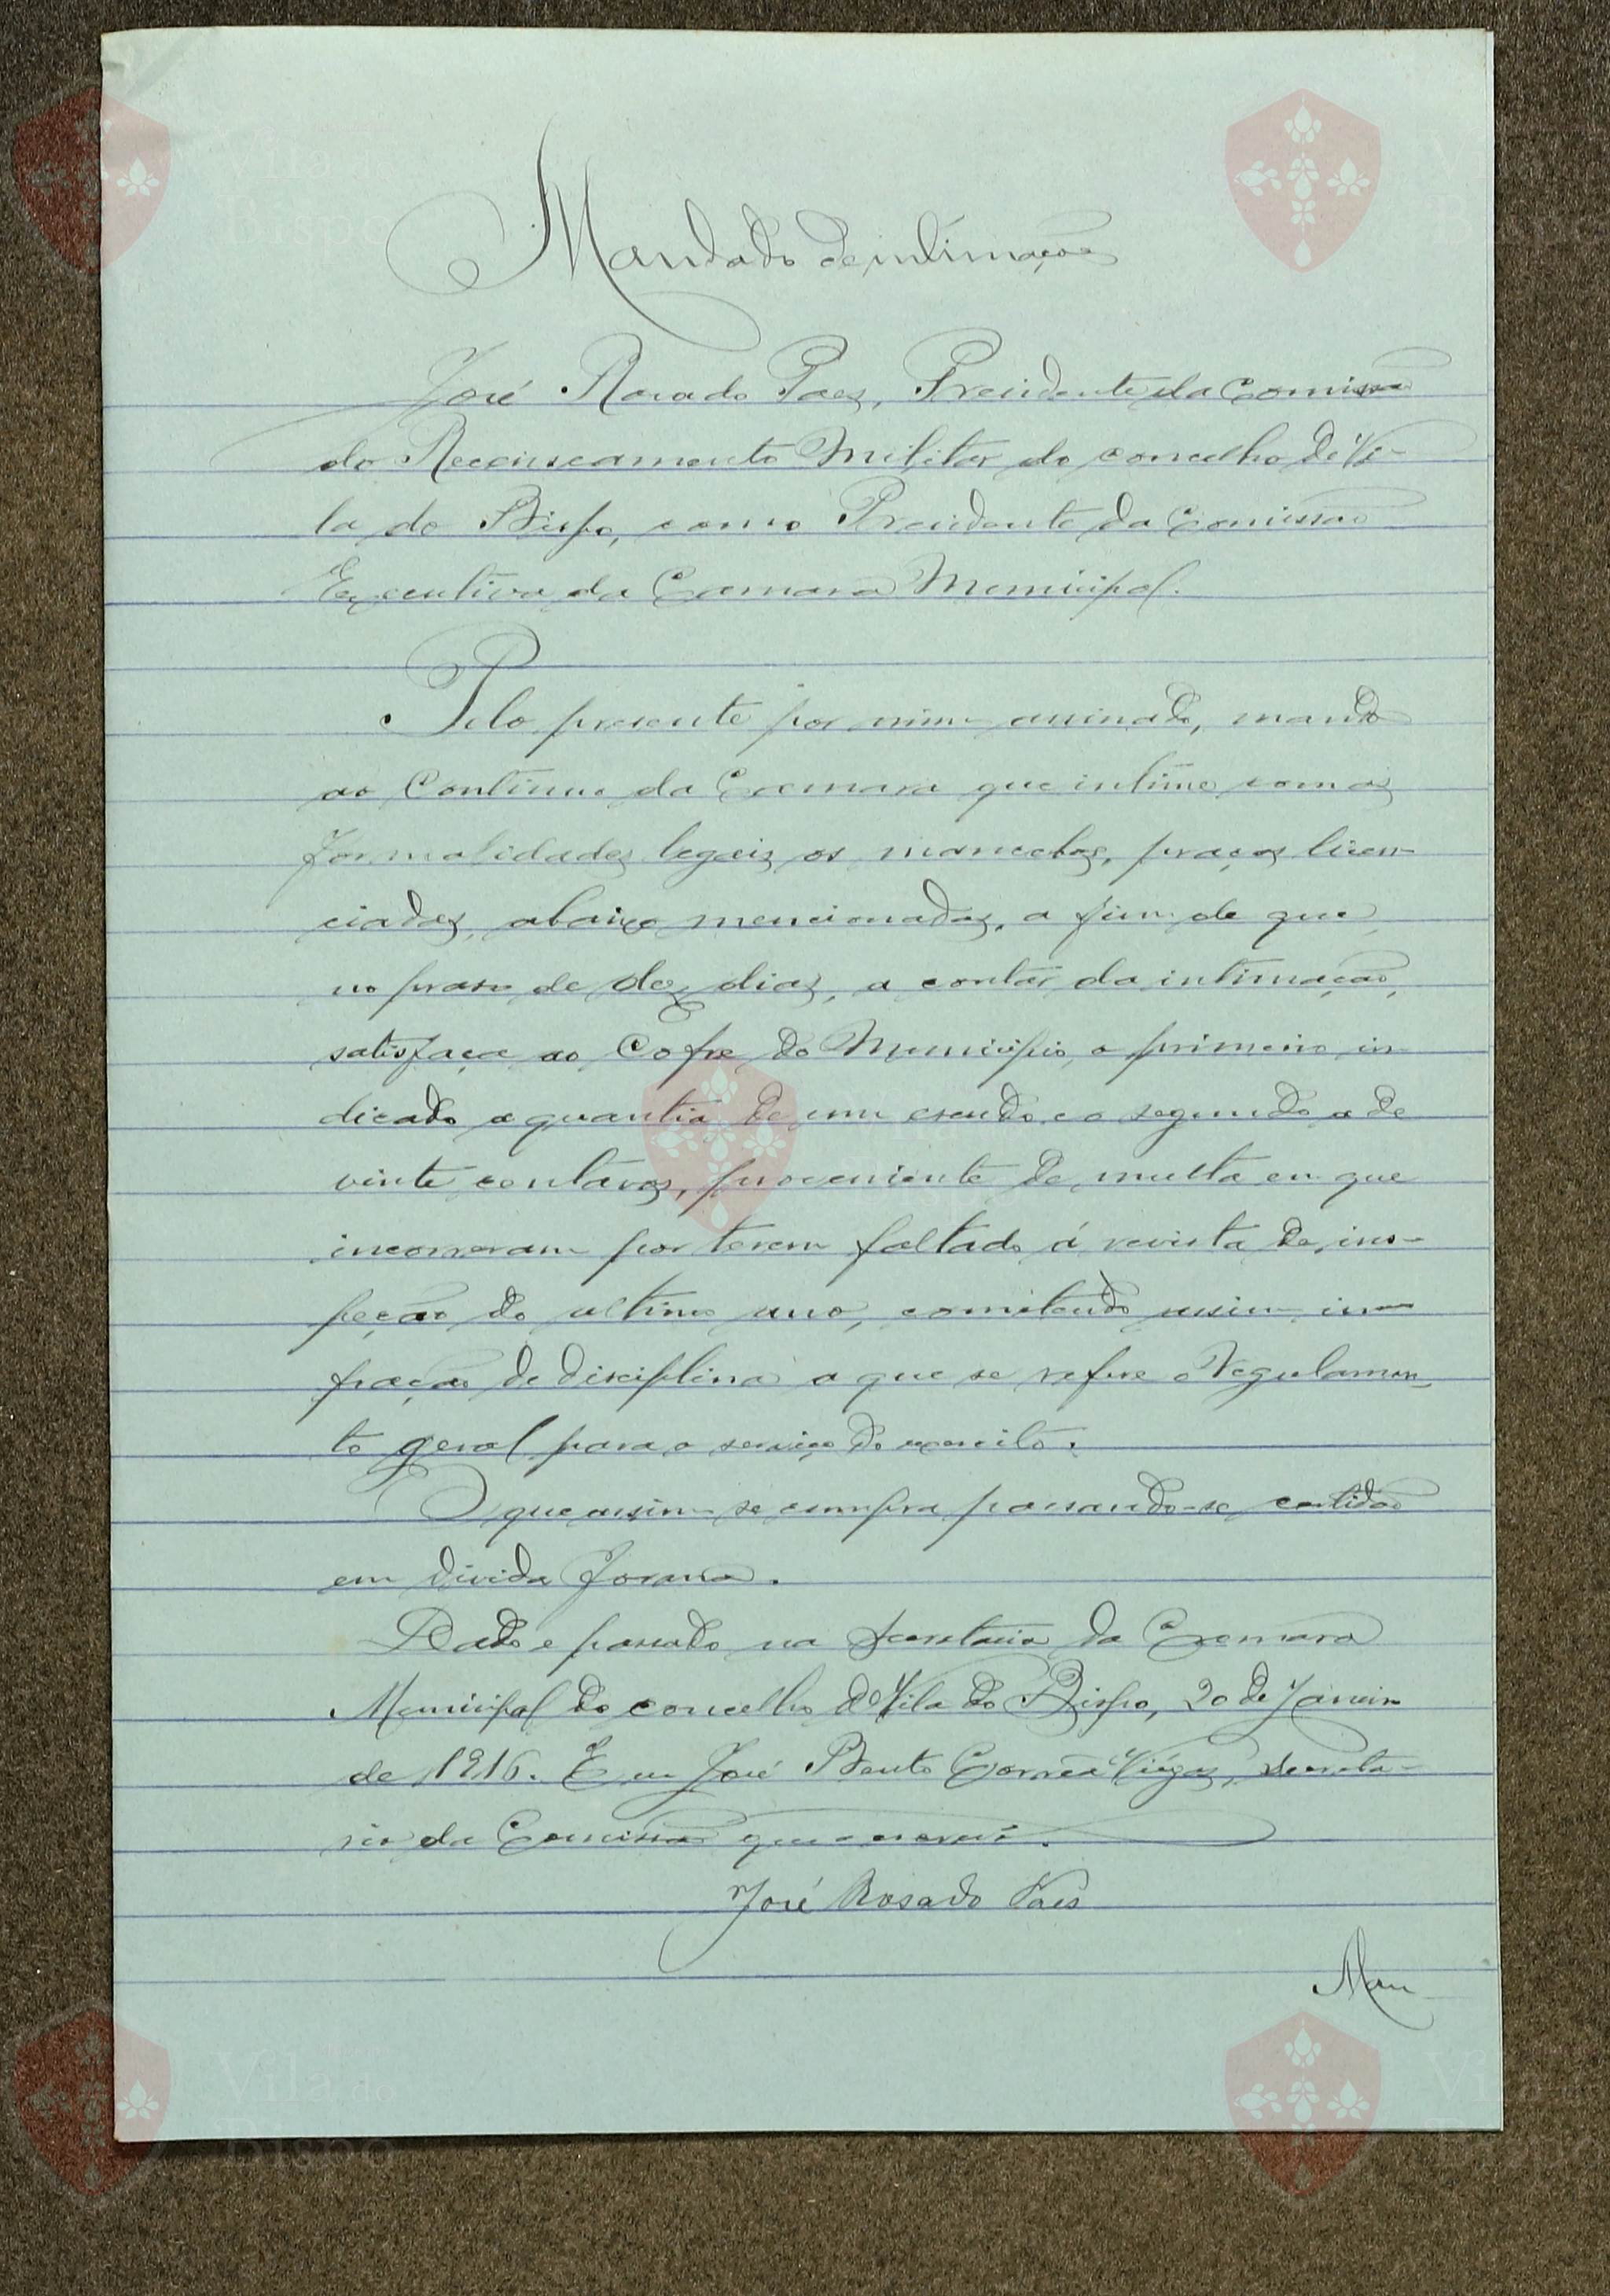 Mandado de intimação
José Rosado Paes, Presidente da Comissão
do Recenseamento Militar do concelho de Vi-
la do Bispo, como Presidente da Comissão
Executiva da Camara Municipal.
Pelo presente por mim assinado, mando
ao Continuo da Camara que intime com as
formalidades legais os mancebos, praças licen-
ciadas, abaixo mencionadas, a fim de que
no praso de dez dias, a contar da intimação,
satisfaça ao Cofre do Municipio, o primeiro in-
dicado a quantia de um escudo e o segundo a de
vinte centavos, proveniente de multa em que
incorreram por terem faltado á revista de ins-
peção do ultimo ano, cometendo assim in-
fração de disciplina a que se refere o Regulamen-
to geral para o serviço do exercito.
O que assim se cumpra passando-se certidão
em divida forma.
Dado e passado na Secretaria da Camara
Municipal do concelho de Vila do Bispo, 20 de Janeiro
de 1916. E eu José Bento Corrêa Viégas, secreta-
rio da Comissão que o escrevi.
José Rosado Paes
Man-
Vila do
Bispo